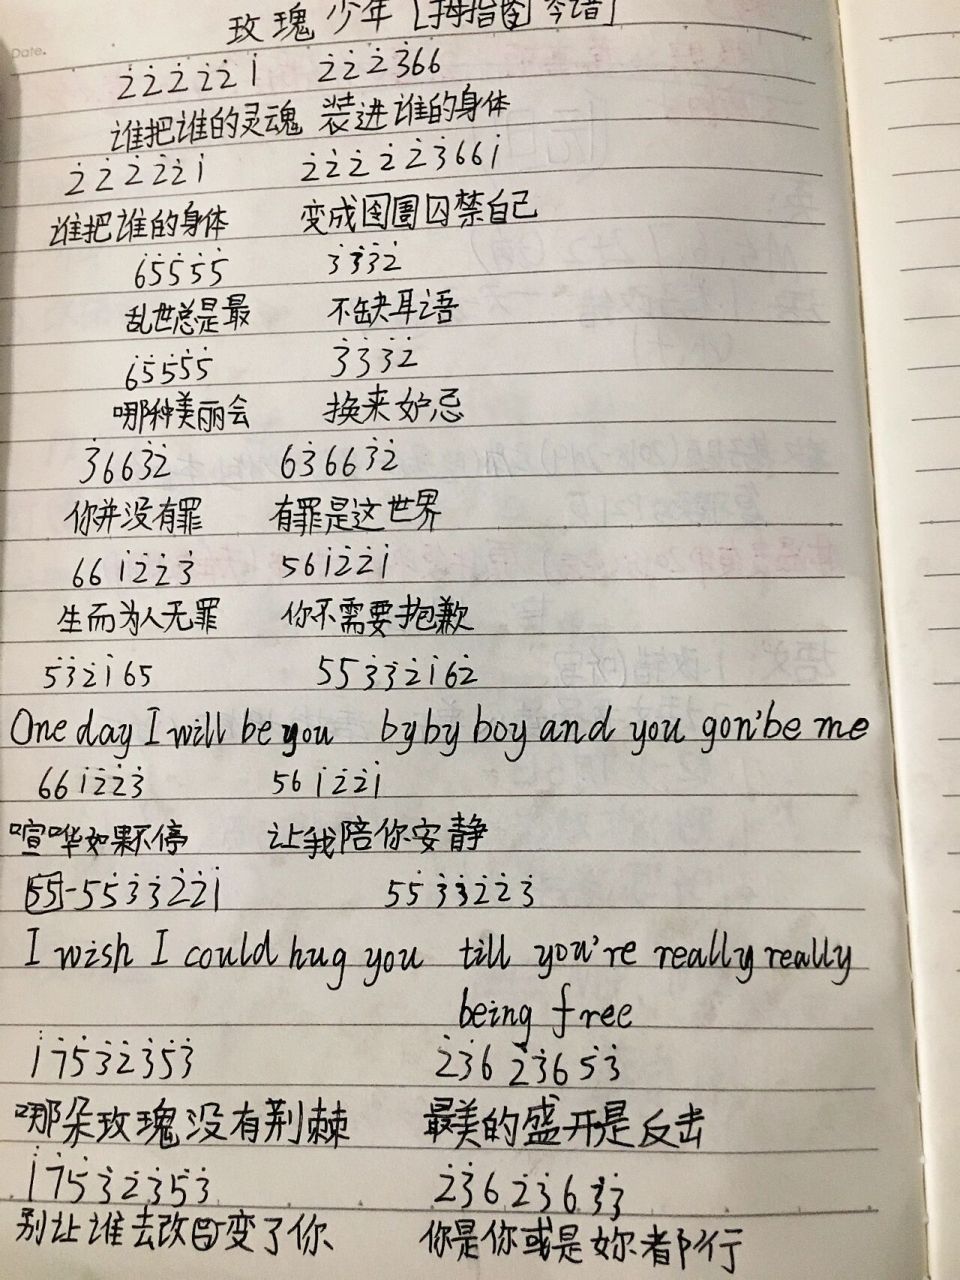 Date.
玫瑰少年 [拇指图 琴谱]
2̇ 2̇ 2̇ 2̇ 2̇ 1̇ 2̇ 2̇ 2̇ 3̇ 6 6
谁把谁的灵魂 装进谁的身体
2̇ 2̇ 2̇ 2̇ 2̇ 1̇ 2̇ 2̇ 2̇ 2̇ 2̇ 3̇ 6 6 1̇
谁把谁的身体 变成囹圄囚禁自己
6 5̇ 5̇ 5̇ 5̇ 3̇ 3̇ 3̇ 2̇
乱世总是最 不缺耳语
6 5̇ 5̇ 5̇ 5̇ 3̇ 3̇ 3̇ 2̇
哪种美丽会 换来妒忌
3̇ 6 6 3̇ 2̇ 6 3̇ 6 6 3̇ 2̇
你并没有罪 有罪是这世界
6 6 1̇ 2̇ 2̇ 3̇ 5 6 1̇ 2̇ 2̇ 1̇
生而为人无罪 你不需要抱歉
5̇ 3̇ 2̇ 1̇ 6 5 5 5 3̇ 3̇ 2̇ 1̇ 6 2̇
One day I will be you by by boy and you gon'be me
6 6 1̇ 2̇ 2̇ 3̇ 5 6 1̇ 2̇ 2̇ 1̇
喧哗如果不停 让我陪你安静
55-5 5̇ 3̇ 3̇ 2̇ 2̇ 1̇ 5 5̇ 3̇ 3̇ 2̇ 2̇ 3̇
I wish I could hug you till you're really really
being free
1̇ 7 5̇ 3̇ 2̇ 3̇ 5̇ 3̇ 2̇ 3̇ 6 2̇ 3̇ 6 5̇ 3̇
哪朵玫瑰没有荆棘 最美的盛开是反击
1̇ 7 5̇ 3̇ 2̇ 3̇ 5̇ 3̇ 2̇ 3̇ 6 2̇ 3̇ 6 3̇ 3̇
别让谁去改变了你 你是你或是妳都行